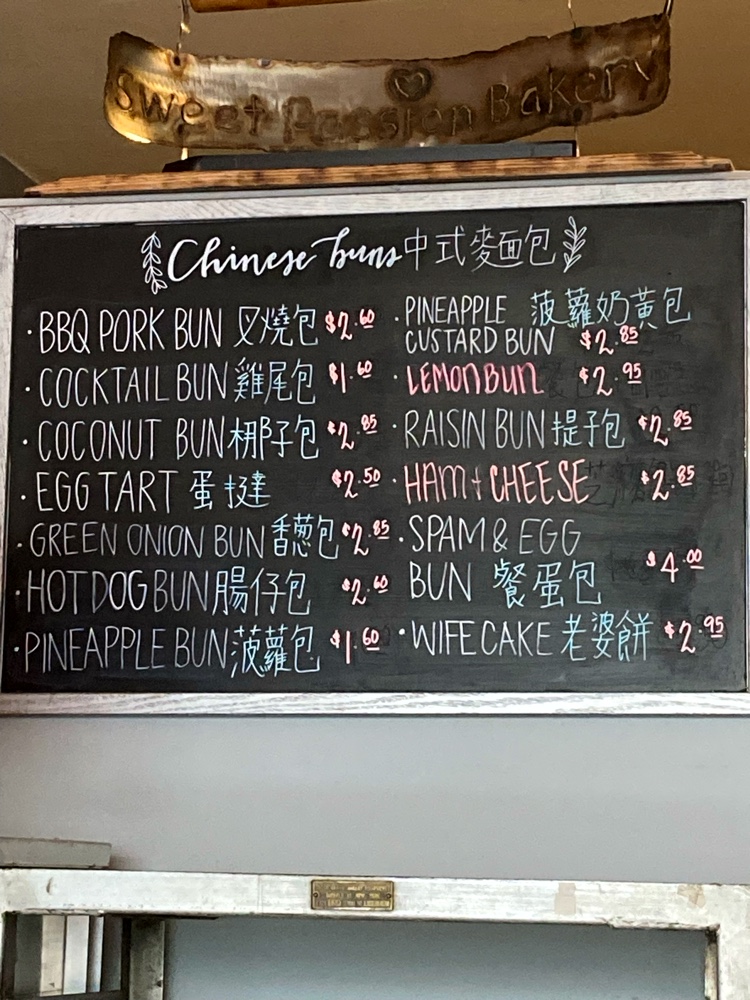 Sweet Passion Bakery
Chinese buns 中式麥面包
· BBQ PORK BUN 叉燒包 $2.60
· COCKTAIL BUN 雞尾包 $1.60
· COCONUT BUN 椰子包 $2.85
· EGG TART 蛋撻 $2.50
· GREEN ONION BUN 香葱包 $2.85
· HOT DOG BUN 腸仔包 $2.60
· PINEAPPLE BUN 菠蘿包 $1.60
· PINEAPPLE 菠蘿奶黃包
CUSTARD BUN $2.85
· LEMON BUN $2.95
· RAISIN BUN 提子包 $2.85
· HAM + CHEESE $2.85
· SPAM & EGG
BUN 餐蛋包 $4.00
· WIFE CAKE 老婆餅 $2.95